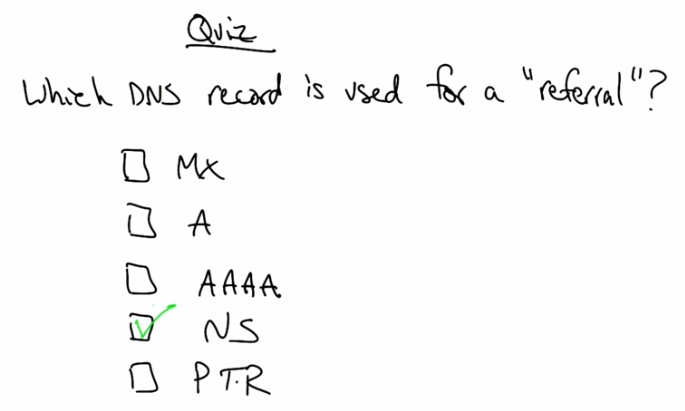 Quiz
Which DNS record is used for a "referral"?
MX
A
AAAA
NS
PTR